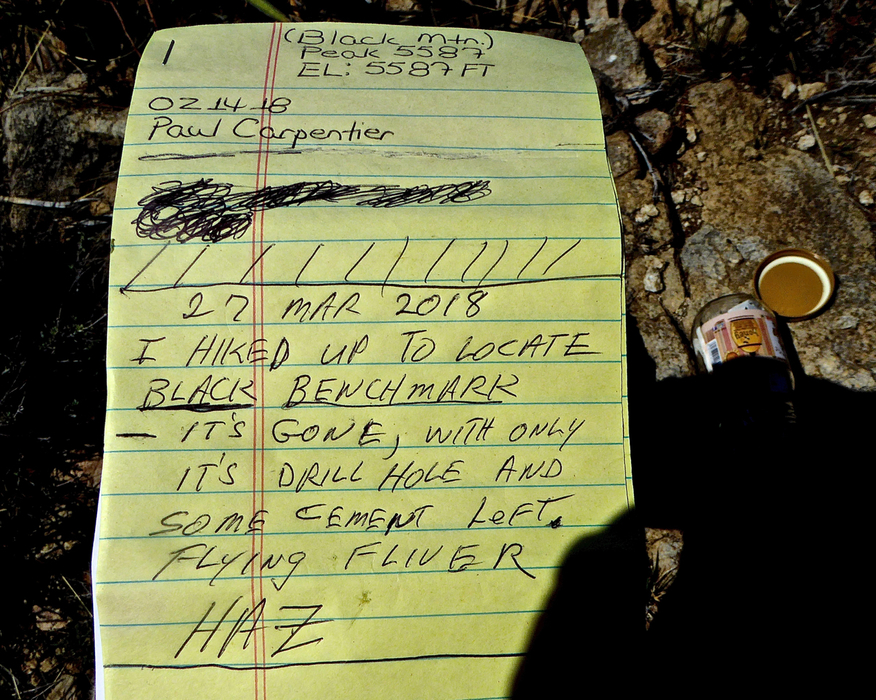 1
(Black Mtn.)
Peak 5587
EL: 5587 FT
02-14-18
Paul Carpentier
27 MAR 2018
I HIKED UP TO LOCATE
BLACK BENCHMARK
— IT'S GONE, WITH ONLY
IT'S DRILL HOLE AND
SOME CEMENT LEFT.
FLYING FLIVER
HAZ